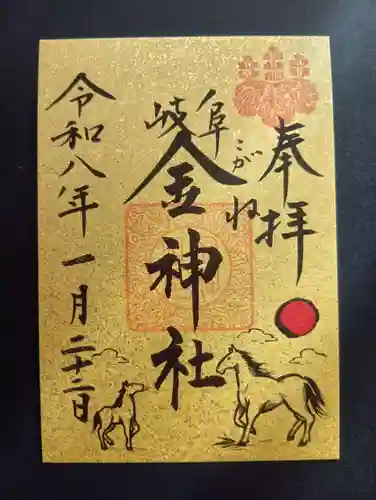 奉拝
岐阜
金神社
こがね
令和八年一月二十二日